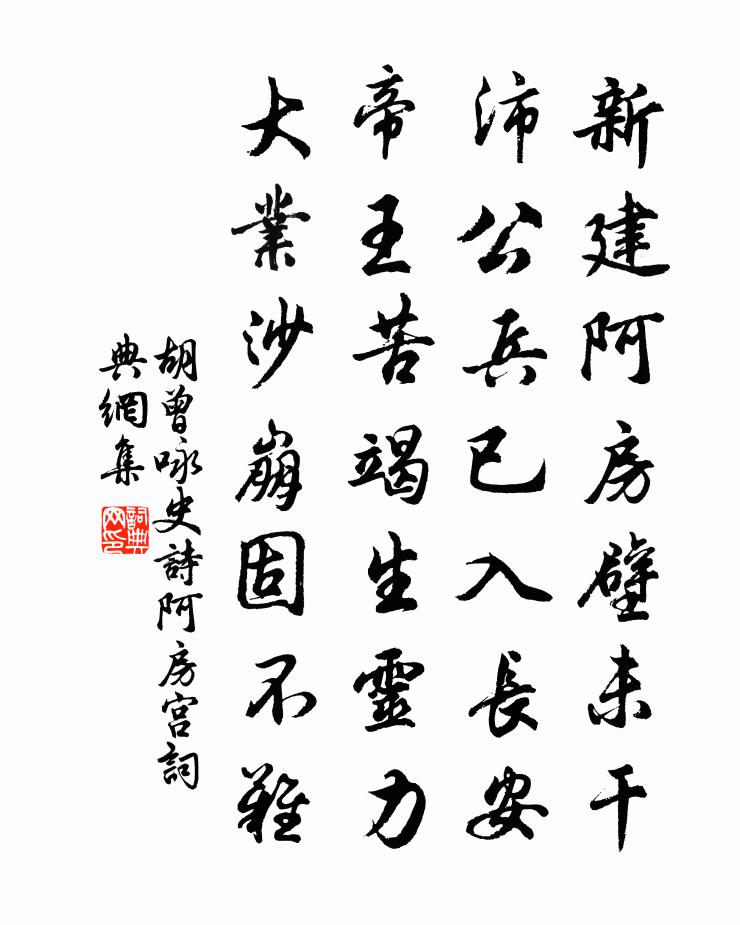 新建阿房壁未干
沛公兵已入長安
帝王苦竭生靈力
大業沙崩固不難
胡曾咏史詩阿房宮詞
典網集
詞典网印